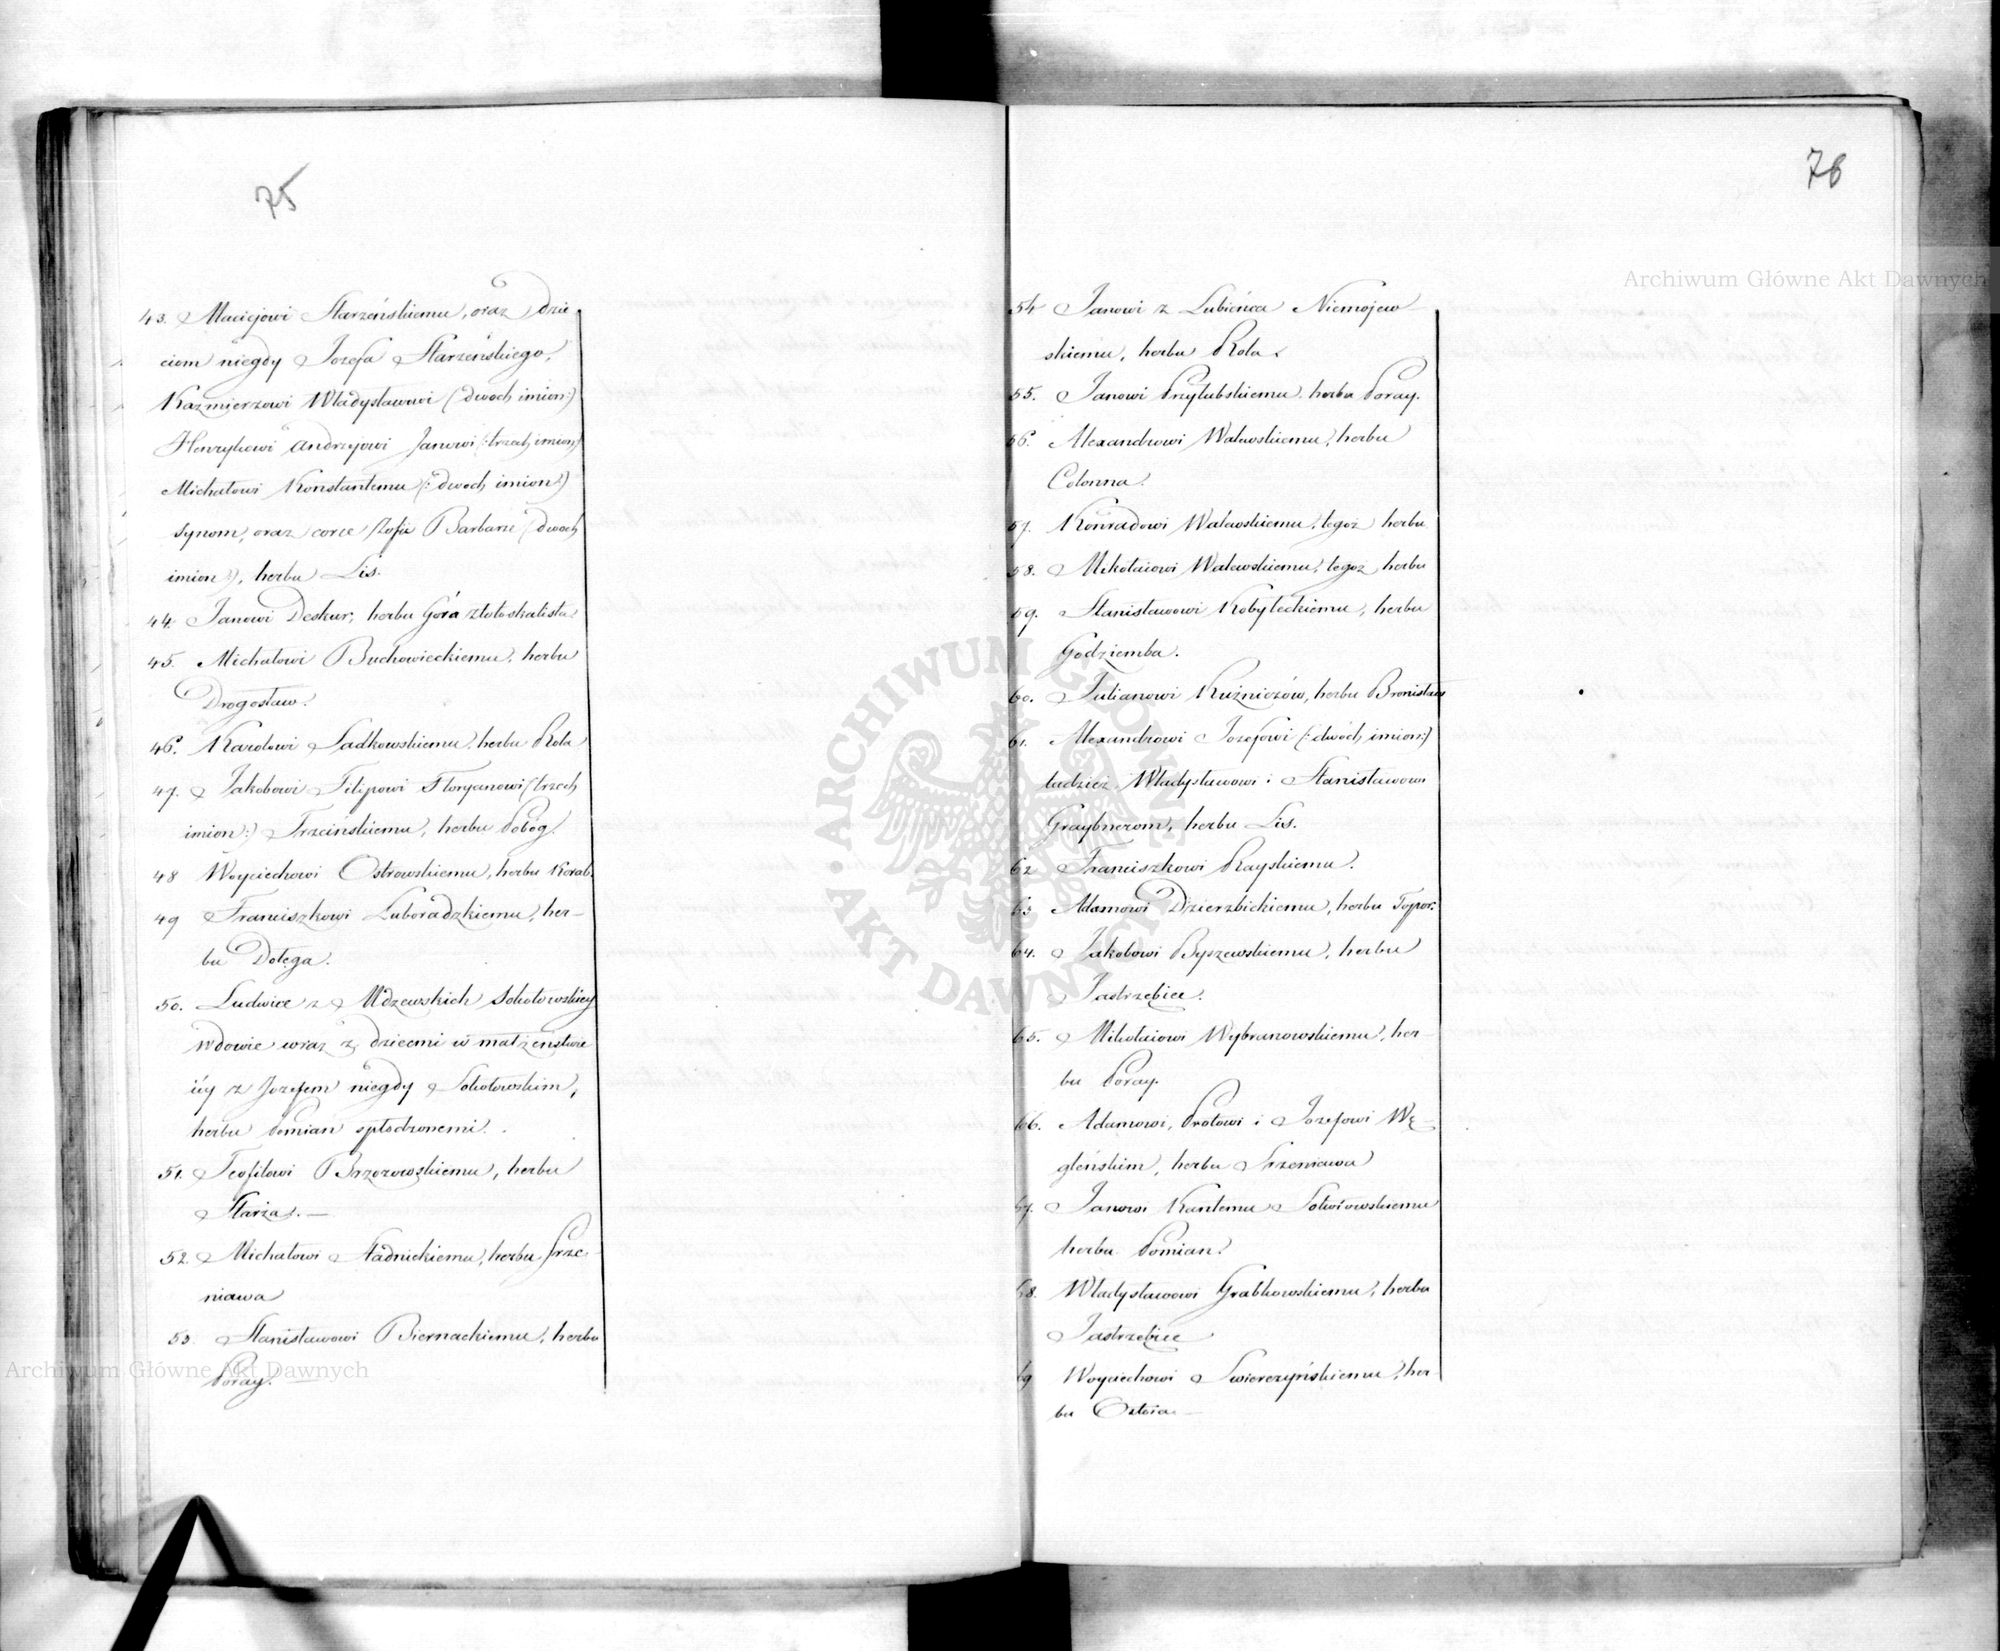 75
43. Maciejowi Starzeńskiemu, oraz dzie
ciom niegdy Jozefa Starzeńskiego,
Kazmierzowi Władysławowi (: dwoch imion :)
Henrykowi Andrzejowi Janowi (: trzech imion :)
Michałowi Konstantemu (: dwoch imion :)
synom, oraz corce Zofii Barbarze (: dwoch
imion :), herbu Lis.
44. Janowi Deskur, herbu Góra złotoskalista
45. Michałowi Buchowieckiemu, herbu
Drogosław.
46. Karolowi Sadkowskiemu, herbu Rola
47. Jakobowi Filipowi Floryanowi (: trzech
imion :) Trzcińskiemu, herbu Pobóg.
48 Woyciechowi Ostrowskiemu, herbu Korab.
49 Franciszkowi Luboradzkiemu, her-
bu Dołęga.
50. Ludwice z Mdzewskich Sokołowskiey
wdowie wraz z dziecmi w małżeństwie
iéy z Jozefem niegdy Sokołowskim,
herbu Pomian spłodzonemi.
51. Teofilowi Brzozowskiemu, herbu
Starża. —
52. Michałowi Stadnickiemu, herbu Srze-
niawa
53. Stanisławowi Biernackiemu, herbu
Poray.
76
54 Janowi z Lubieńca Niemojew
skiemu, herbu Rola.
55. Janowi Przyłubskiemu, herbu Poray.
56. Alexandrowi Walewskiemu, herbu
Colonna.
57. Konradowi Walewskiemu, tegoż herbu
58. Mikołaiowi Walewskiemu, tegoż herbu
59. Stanisławowi Kobyłeckiemu, herbu
Godziemba.
60. Julianowi Kuźniczów, herbu Bronisław
61. Alexandrowi Jozefowi (: dwóch imion :)
tudzież Władysławowi i Stanisławowi
Graybnerom, herbu Lis.
62 Franciszkowi Rayskiemu.
63 Adamowi Dzierzbickiemu, herbu Topor.
64. Jakobowi Byszewskiemu, herbu
Jastrzębiec.
65. Mikołaiowi Wybranowskiemu, her-
bu Poray.
66. Adamowi, Protowi i Jozefowi Wę-
gleńskim, herbu Srzeniawa
67. Janowi Kantemu Sokołowskiemu
herbu Pomian.
68. Władysławowi Grabkowskiemu, herbu
Jastrzębiec
69 Woyciechowi Swierczyńskiemu, her
bu Ostoia —
Archiwum Główne Akt Dawnych
ARCHIWUM GŁÓWNE AKT DAWNYCH
Archiwum Główne Akt Dawnych